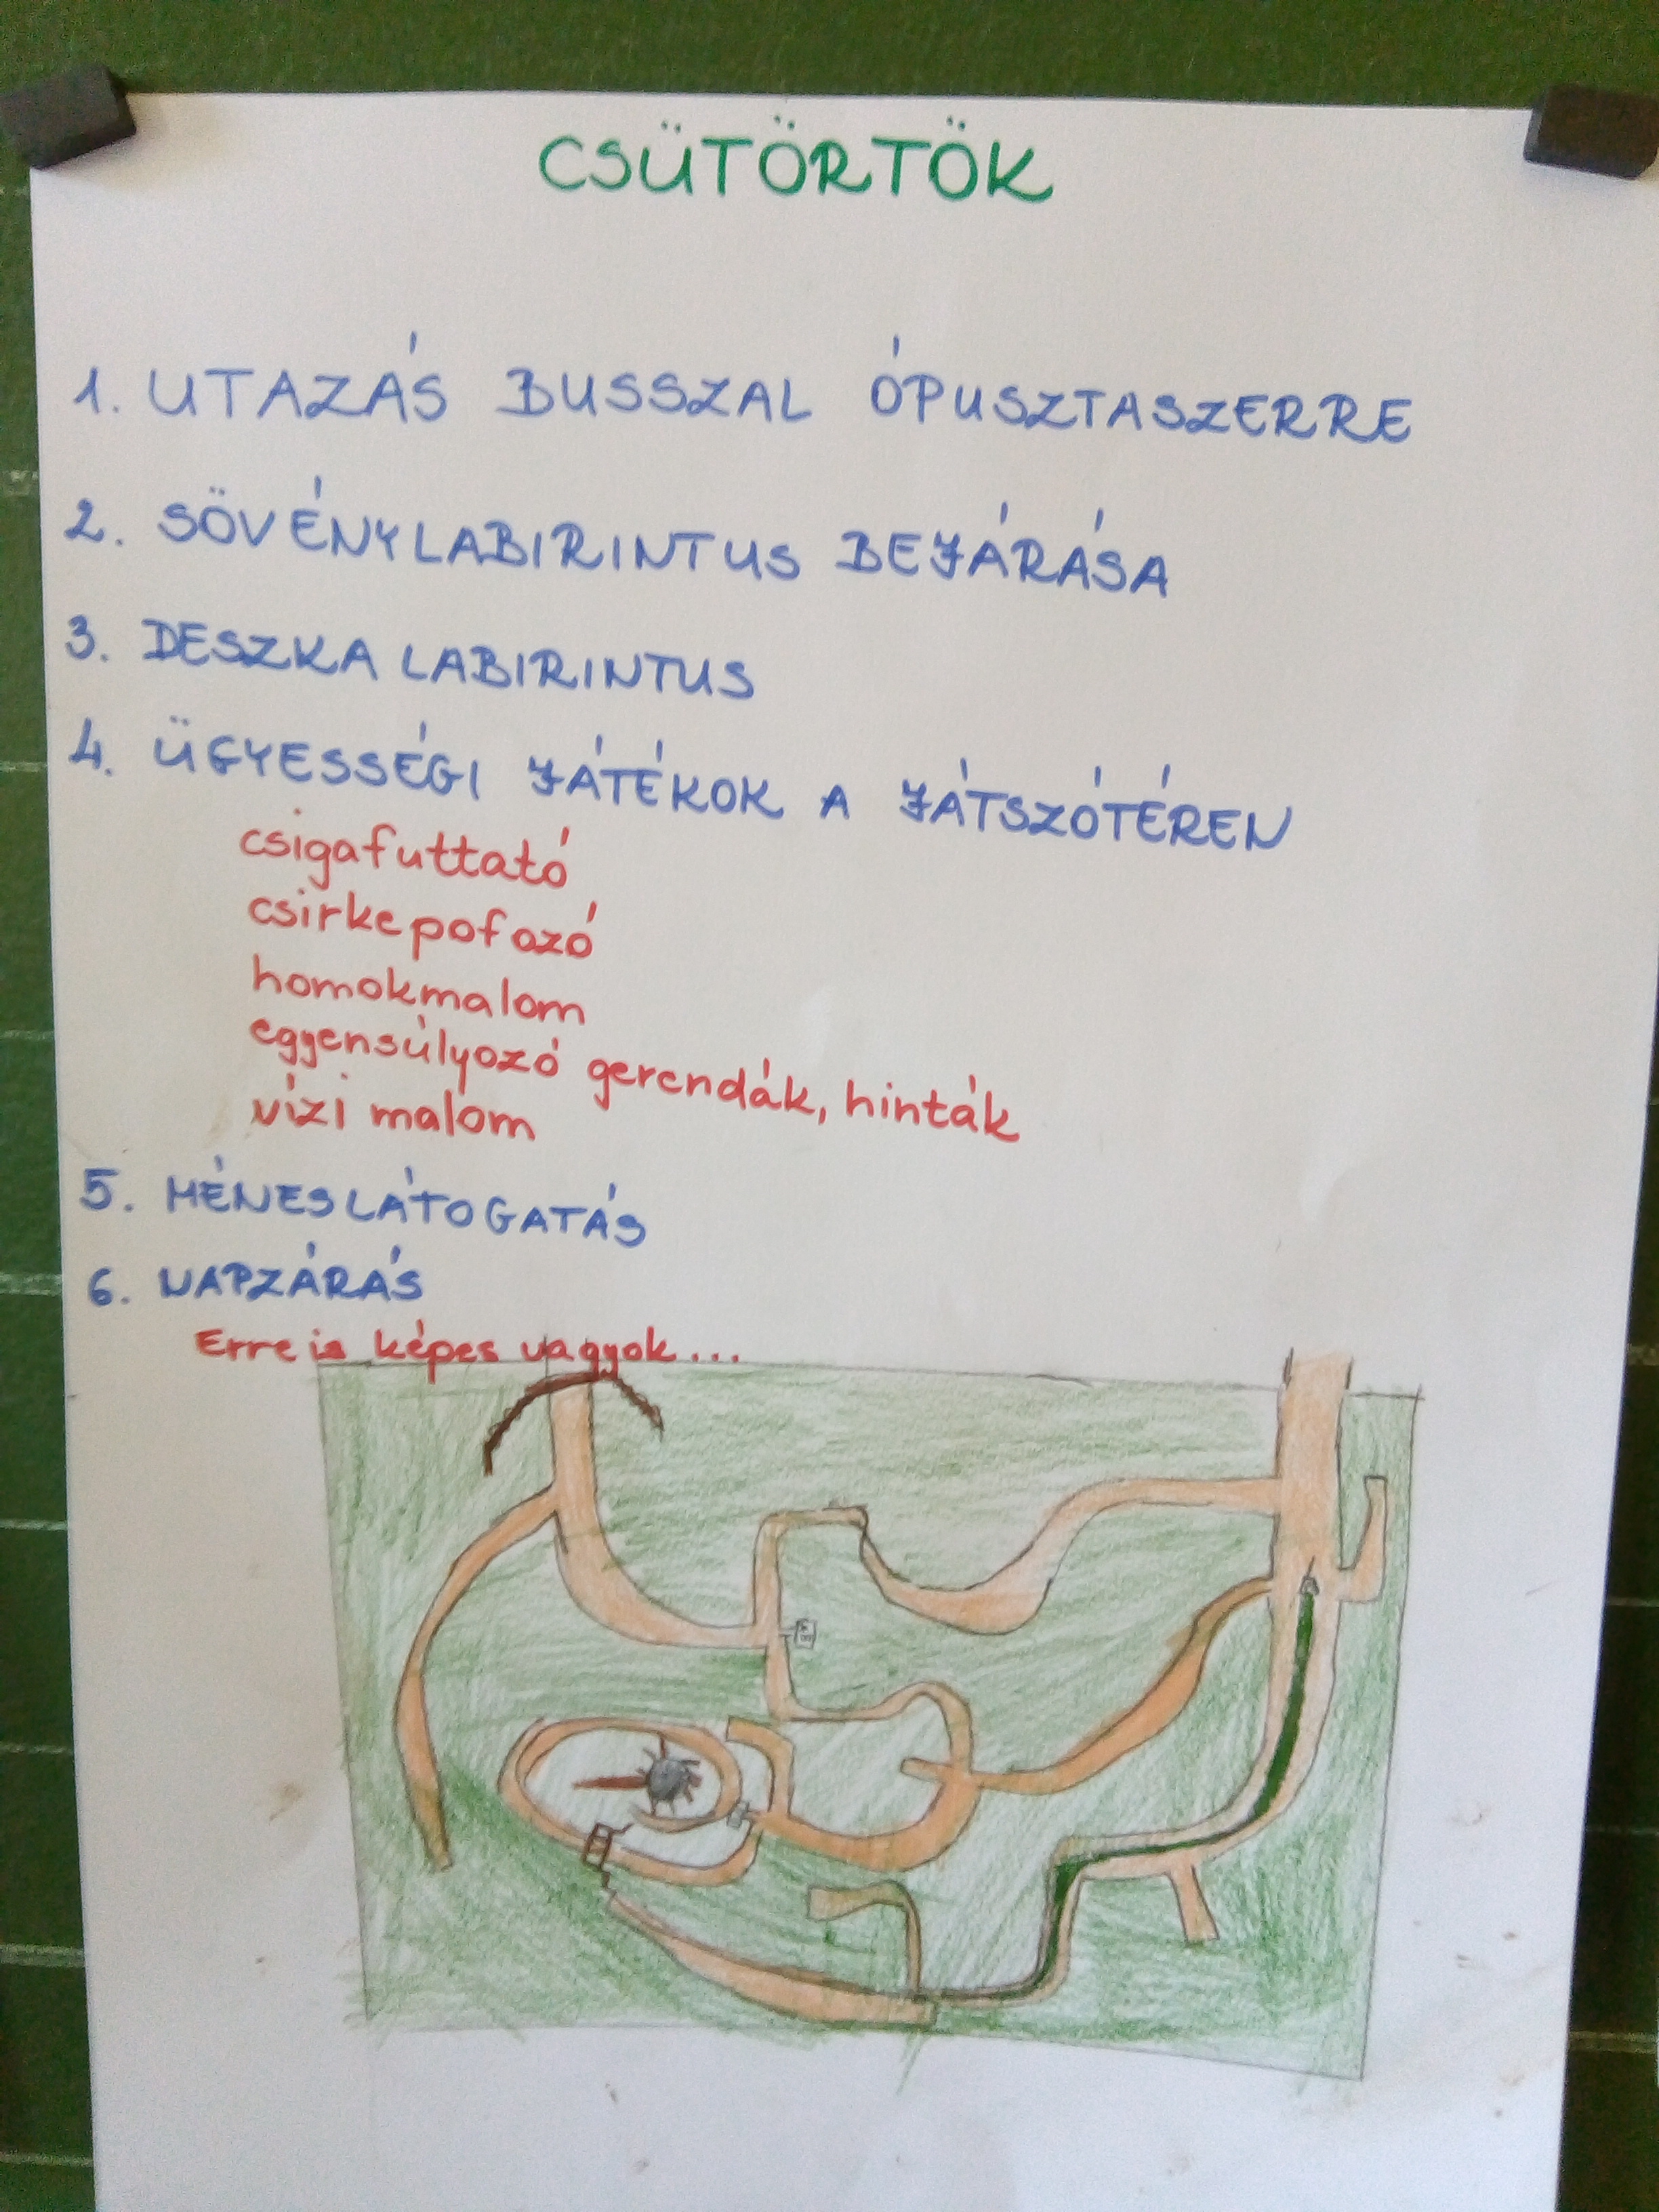 CSÜTÖRTÖK
1. UTAZÁS BUSSZAL ÓPUSZTASZERRE
2. SÖVÉNYLABIRINTUS BEJÁRÁSA
3. DESZKA LABIRINTUS
4. ÜGYESSÉGI JÁTÉKOK A JÁTSZÓTÉREN
csigafuttató
csirkepofozó
homokmalom
egyensúlyozó gerendák, hinták
vízi malom
5. MÉNESLÁTOGATÁS
6. NAPZÁRÁS
Erre is képes vagyok...